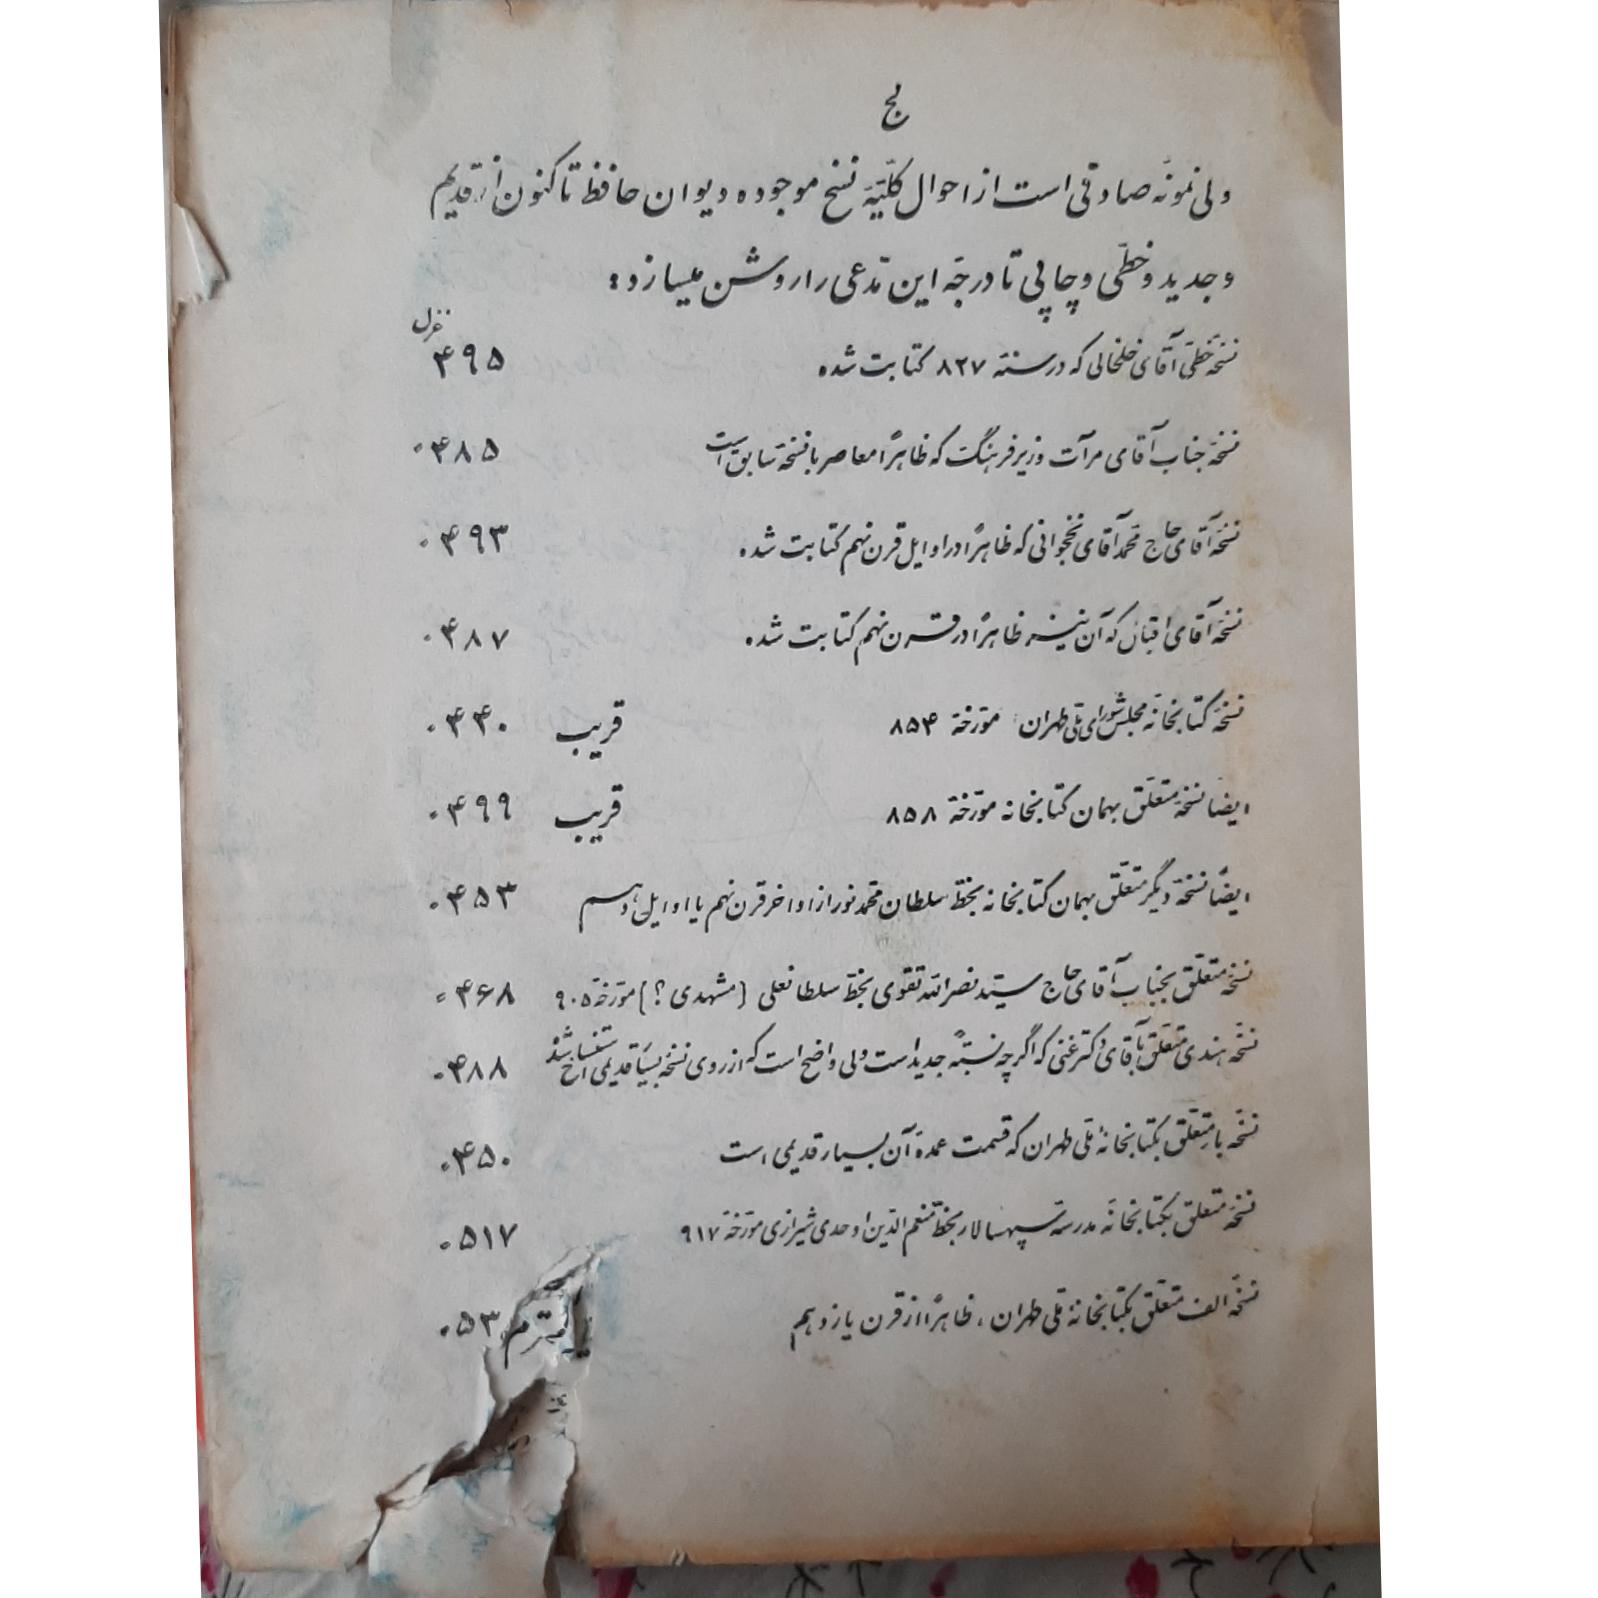 لج
ولی نمونهٔ صادقی است از احوال کلّیّهٔ نسخ موجودهٔ دیوان حافظ تاکنون از قدیم
و جدید و خطّی و چاپی تا درجهٔ این مدّعی را روشن میسازد :
غزل
نسخهٔ خطّی آقای خلخالی که در سنهٔ ۸۲۷ کتابت شده ۴۹۵
نسخهٔ جناب آقای مرآت وزیر فرهنگ که ظاهراً معاصر با نسخهٔ سابق است ۴۸۵ "
نسخهٔ آقای حاج محمّد آقای نخجوانی که ظاهراً در اوایل قرن نهم کتابت شده ۴۹۳ "
نسخهٔ آقای اقبال که آن نیز ظاهراً در قرن نهم کتابت شده ۴۸۷ "
نسخهٔ کتابخانهٔ مجلس شورای ملّی طهران مورّخهٔ ۸۵۴ قریب ۴۴۰ "
ایضاً نسخهٔ متعلّق بهمان کتابخانه مورّخهٔ ۸۵۸ قریب ۴۹۹ "
ایضاً نسخهٔ دیگر متعلّق بهمان کتابخانه بخطّ سلطان محمّد نور از اواخر قرن نهم یا اوایل دهم ۴۵۳ "
نسخهٔ متعلّق بجناب آقای حاج سیّد نصرالله تقوی بخطّ سلطانعلی (مشهدی ؟) مورّخهٔ ۹۰۵ ۴۶۸ "
نسخهٔ هندی متعلّق بآقای دکتر غنی که اگرچه نسبةً جدید است ولی واضح است که از روی نسخهٔ بسیار قدیمی استنساخ شده ۴۸۸ "
نسخهٔ باء متعلّق بکتابخانهٔ ملّی طهران که قسمت عمدهٔ آن بسیار قدیمی است ۴۵۰ "
نسخهٔ متعلّق بکتابخانهٔ مدرسهٔ سپهسالار بخطّ منعم الدّین اوحدی شیرازی مورّخهٔ ۹۱۷ ۵۱۷ "
نسخهٔ الف متعلّق بکتابخانهٔ ملّی طهران ، ظاهراً از قرن یازدهم